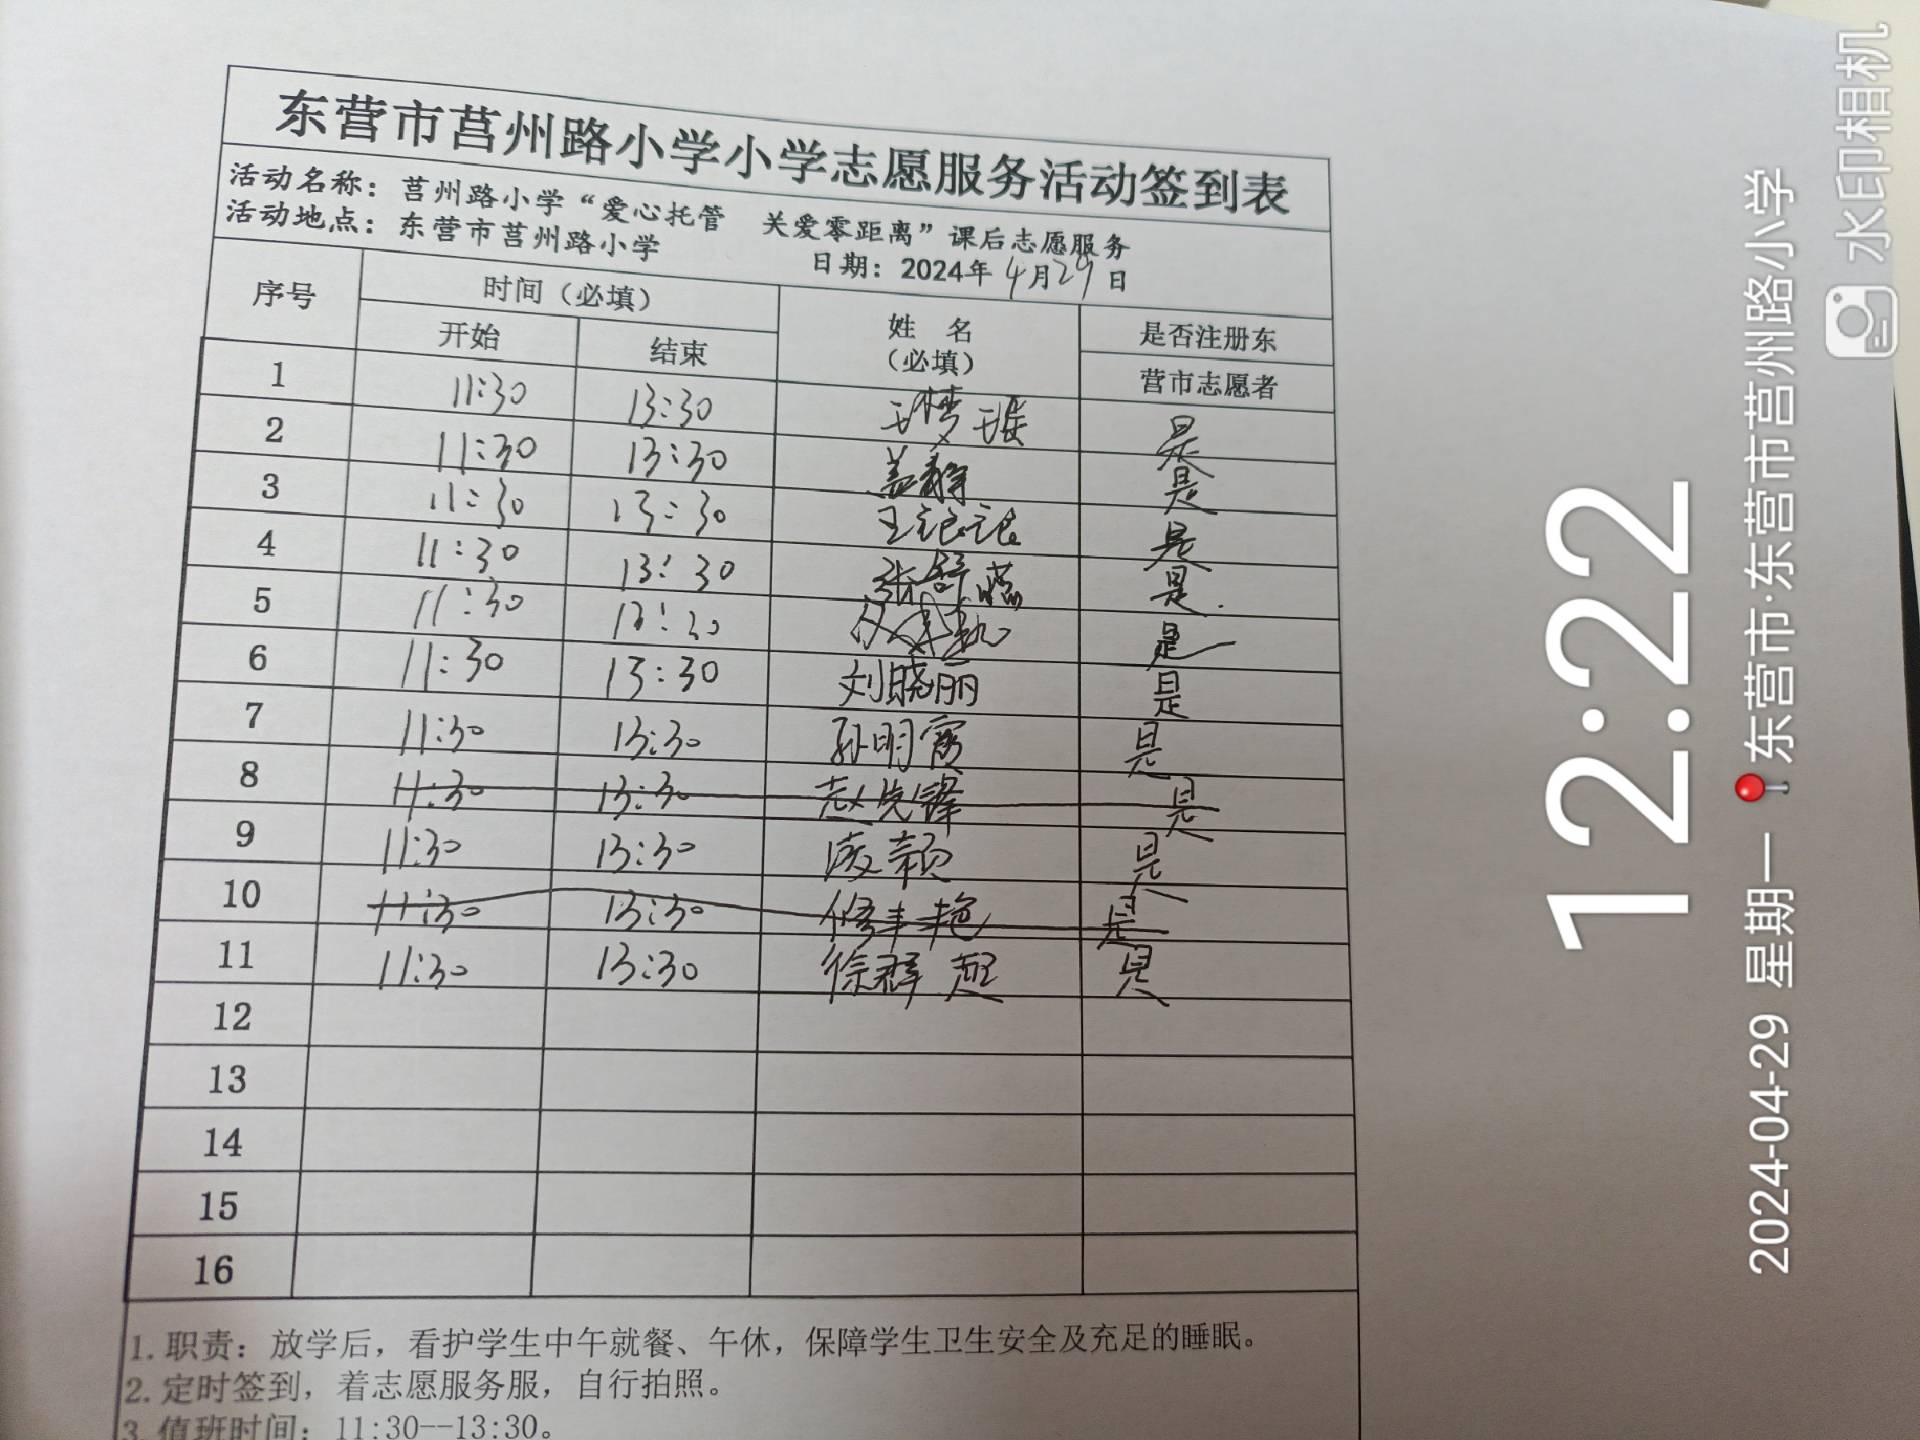 东营市莒州路小学小学志愿服务活动签到表
活动名称：莒州路小学“爱心托管 关爱零距离”课后志愿服务
活动地点：东营市莒州路小学 日期：2024年4月29日
序号 时间（必填） 姓 名（必填） 是否注册东营市志愿者
开始 结束
1 11:30 13:30 是
2 11:30 13:30 盖静 是
3 11:30 13:30 是
4 11:30 13:30 是
5 11:30 13:30 是
6 11:30 13:30 刘晓丽 是
7 11:30 13:30 孙明霞 是
8 11:30 13:30 赵先锋 是
9 11:30 13:30 是
10 11:30 13:30 修丰艳 是
11 11:30 13:30 徐群超 是
12
13
14
15
16
1.职责：放学后，看护学生中午就餐、午休，保障学生卫生安全及充足的睡眠。
2.定时签到，着志愿服务服，自行拍照。
3.值班时间：11:30--13:30。
12:22
2024-04-29 星期一 东营市·东营市莒州路小学
水印相机